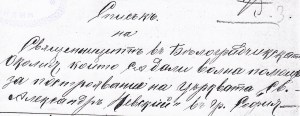 Списъкъ
на
Священницитѣ въ Бѣлоградчишката
Околия който са дали волна помощь
за построявание на църквата „Св.
Александръ Невский" въ гр. София